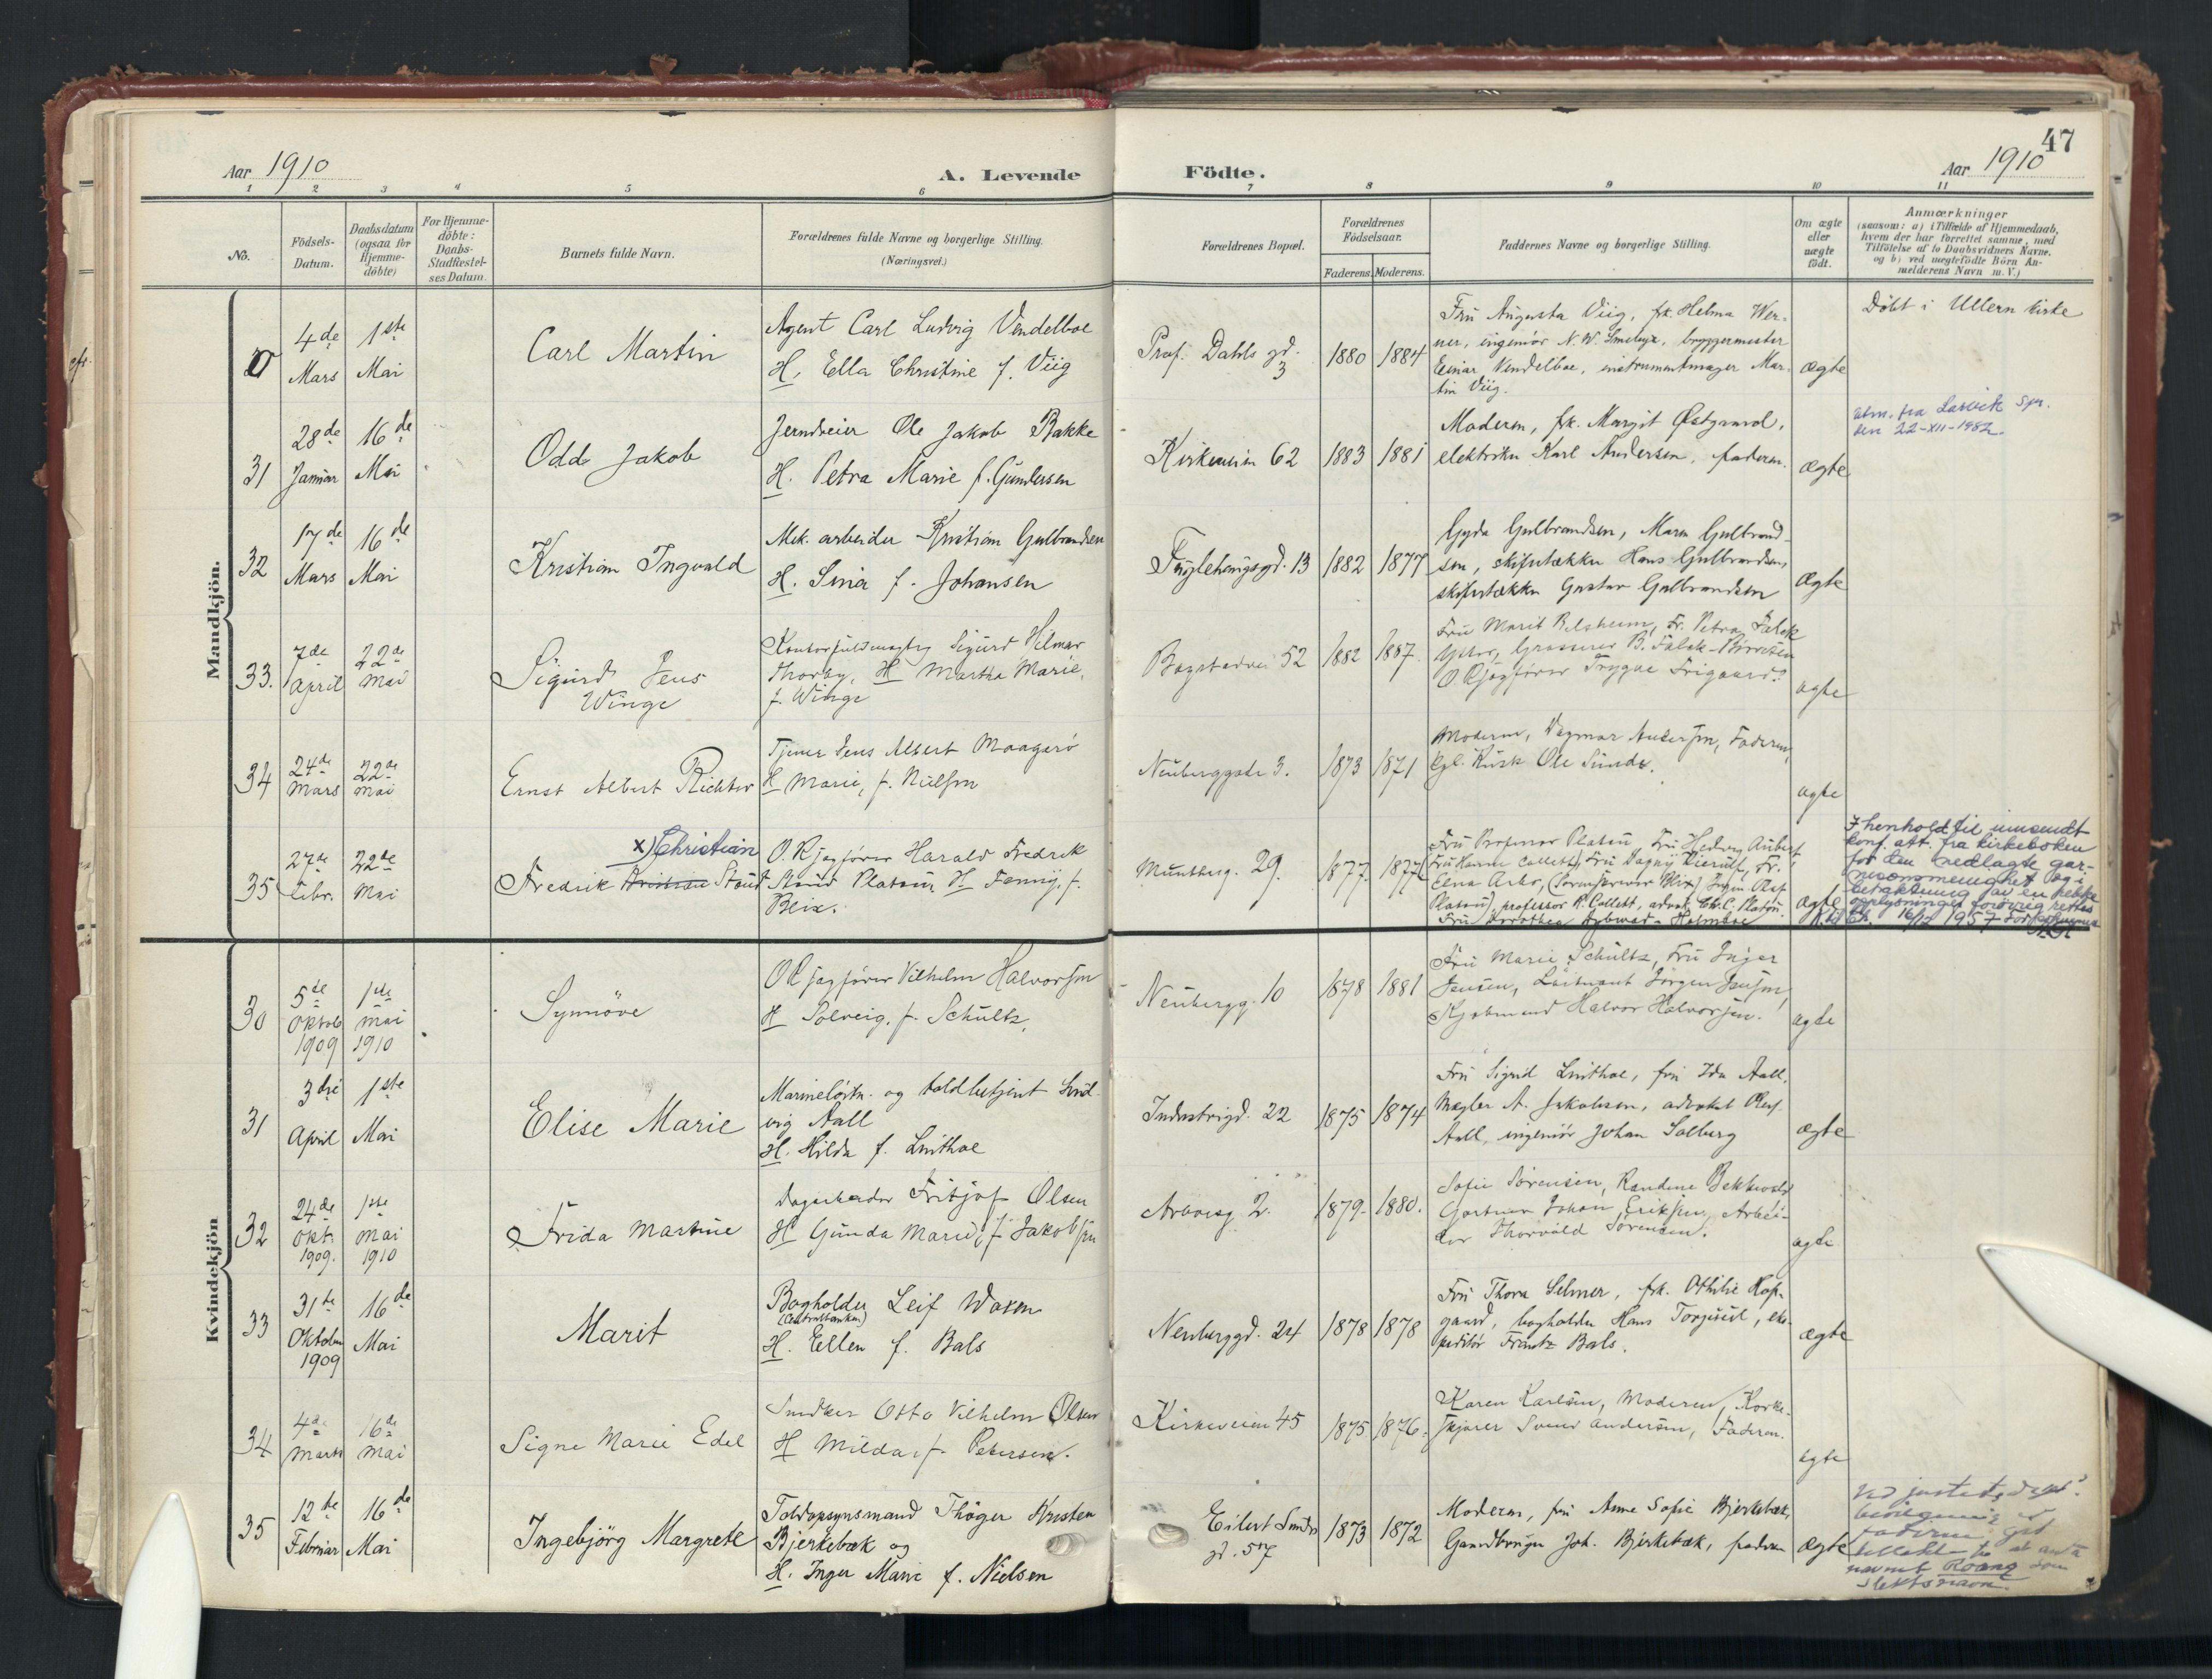 47
Aar 1910
A. Levende
Födte.
Aar 1910
1 2 3 4 5 6 7 8 9 10 11
No.
Födsels-
Datum.
Daabsdatum
(ogsaa for
Hjemme-
döbte)
For Hjemme-
döbte:
Daabs-
Stadfæstel-
ses Datum.
Barnets fulde Navn.
Forældrenes fulde Navne og borgerlige Stilling.
(Næringsvei.)
Forældrenes Bopæl.
Forældrenes
Födselsaar.
Faderens. Moderens.
Faddernes Navne og borgerlige Stilling.
Om ægte
eller
uægte
födt.
Anmærkninger
(saasom: a) i Tilfælde af Hjemmedaab,
hvem der har forrettet samme, med
Tilföielse af to Daabsvidners Navne.
og b) ved uægtefödte Börn An-
melderens Navn m. V.)
Mandkjön.
4de Mars
1ste Mai
Carl Martin
Agent Carl Ludvig Vendelboe
H. Ella Christine f. Viig
Prof. Dahls gd.
3
1880 1884
Fru Augusta Viig, frk. Helma Wer-
ner, ingeniør N. W. bryggermester
Einar Vendelboe, instrumentmager Mar-
tin Viig.
ægte
Döbt i Ullern kirke
31
28de Januar
16de Mai
Odd Jakob
Jerndreier Ole Jakob Bakke
H. Petra Marie f. Gundersen
Kirkeveien 62
1883 1881
Moderen, frk. Margit Østgaard,
elektriker Karl Andersen, faderen.
ægte
utm. fra Larvik spr.
den 22-XII-1982.
32
17de Mars
16de Mai
Kristian Ingvald
Mek. arbeider Kristian Gulbrandsen
H. Sina f. Johansen
Fuglehaugsgd. 13
1882 1877
Gyda Gulbrandsen, Maren Gulbrand-
sen, skifertækker Hans Gulbrandsen,
skifertækker Gustav Gulbrandsen
Ægte
33.
7de April
22de Mai
Sigurd Jens
Winge
Kontorfuldmægtig Sigurd Hilmar
Thorby, H Martha Marie,
f. Winge
Bogstadvei 52
1882 1887
Fru Marit Fr. Petra Falck
Ytter, Grosserer B. Falck-
O.R.sagfører Trygve Frigaard.
ægte
34
24de Mars
22de Mai
Ernst Albert Richter
Tjener Jens Albert Maagerö
H Marie, f. Nielsen
Neuberggade 3.
1873 1871
Moderen, Dagmar Andersen, Faderen,
Kgl. Kusk Ole Sunde.
ægte
35
27de Febr.
22de Mai
x) Christian
Fredrik Kristian Stoud
O.R.sagfører Harald Fredrik
Stoud Platou H Fanny, f.
Blix.
Munthesg. 29.
1877. 1877
Fru Professor Platou Fru Hedvig Aubert
Fru Collett, Fru Dagny Fr.
Elna Arbo, Blix) Ingen. Olaf
Platou), professor R. Collett, advok. Chr. C. Platou.
Fru Dorothea Holmboe
ægte
I henhold til innsendt
konf. att. fra kirkeboken
for den nedlagte gar-
nisonsmenighet og i
betraktning av en rekke
opplysninger forövrig rettes
16/12 1957
Kvindekjön
30
5te Oktob 1909
1ste mai 1910
Synnöve
O.R.sagförer Vilhelm Halvorsen
H Solveig, f. Schultz,
Neubergg. 10
1878 1881
Fru Marie Schultz, Fru Inger
Jensen, Löitnant Jörgen Jensen,
Kjøbmand Halvor Halvorsen.
ægte
31
3die April
1ste Mai
Elise Marie
Marineløitn. og toldbetjent Lud-
vig Aall
H. Hilda f. Linthoe
Industrigd. 22
1875 1874
Fru Sigrid Linthoe, fru Ida Aall,
Mægler A. Jakobsen, advokat Olaf
Aall, ingeniør Johan Solberg
ægte
32
24de Okt. 1909.
1ste Mai 1910
Frida Martine
Dagarbeider Fritjof Olsen
H Gunda Marie, f. Jakobsen
Arbosg 2.
1879. 1880.
Sofie Sörensen, Randine
Gartner Johan Eriksen, Arbei-
der Thorvald Sörensen.
ægte
33
31te Oktober 1909
16de Mai
Marit
Bogholder Leif Waxen
(Centralbanken)
H. Ellen f. Bals
Neuberggd. 24
1878 1878
Fru Thora Selmer, frk. Othilie Hof-
gaard, bogholder Hans eks-
peditör Frantz Bals.
ægte
34
4de Marts
16de Mai
Signe Marie Edel
Snedker Otto Vilhelm Olsen
H Milda f. Petersen.
Kirkeveien 45
1875 1876.
Karen Karlsen, Moderen, Korke-
skjærer Svend Andersen, Faderen.
ægte
35
12te Februar
16de Mai
Ingebjörg Margrete
Toldopsynsmand Thöger Kristen
Bjerkebæk og
H. Inger Marie f. Nielsen
Eilert Sundts
gd. 57
1873 1872
Moderen, fru Anne Sofie Bjerkebæk,
Gaardbruger Joh. Bjerkebæk, faderen
Ægte
Ved justitsdept.
bevilgning er
faderen git
tilladelse til at anta
navnet Roang som
slektsnavn.